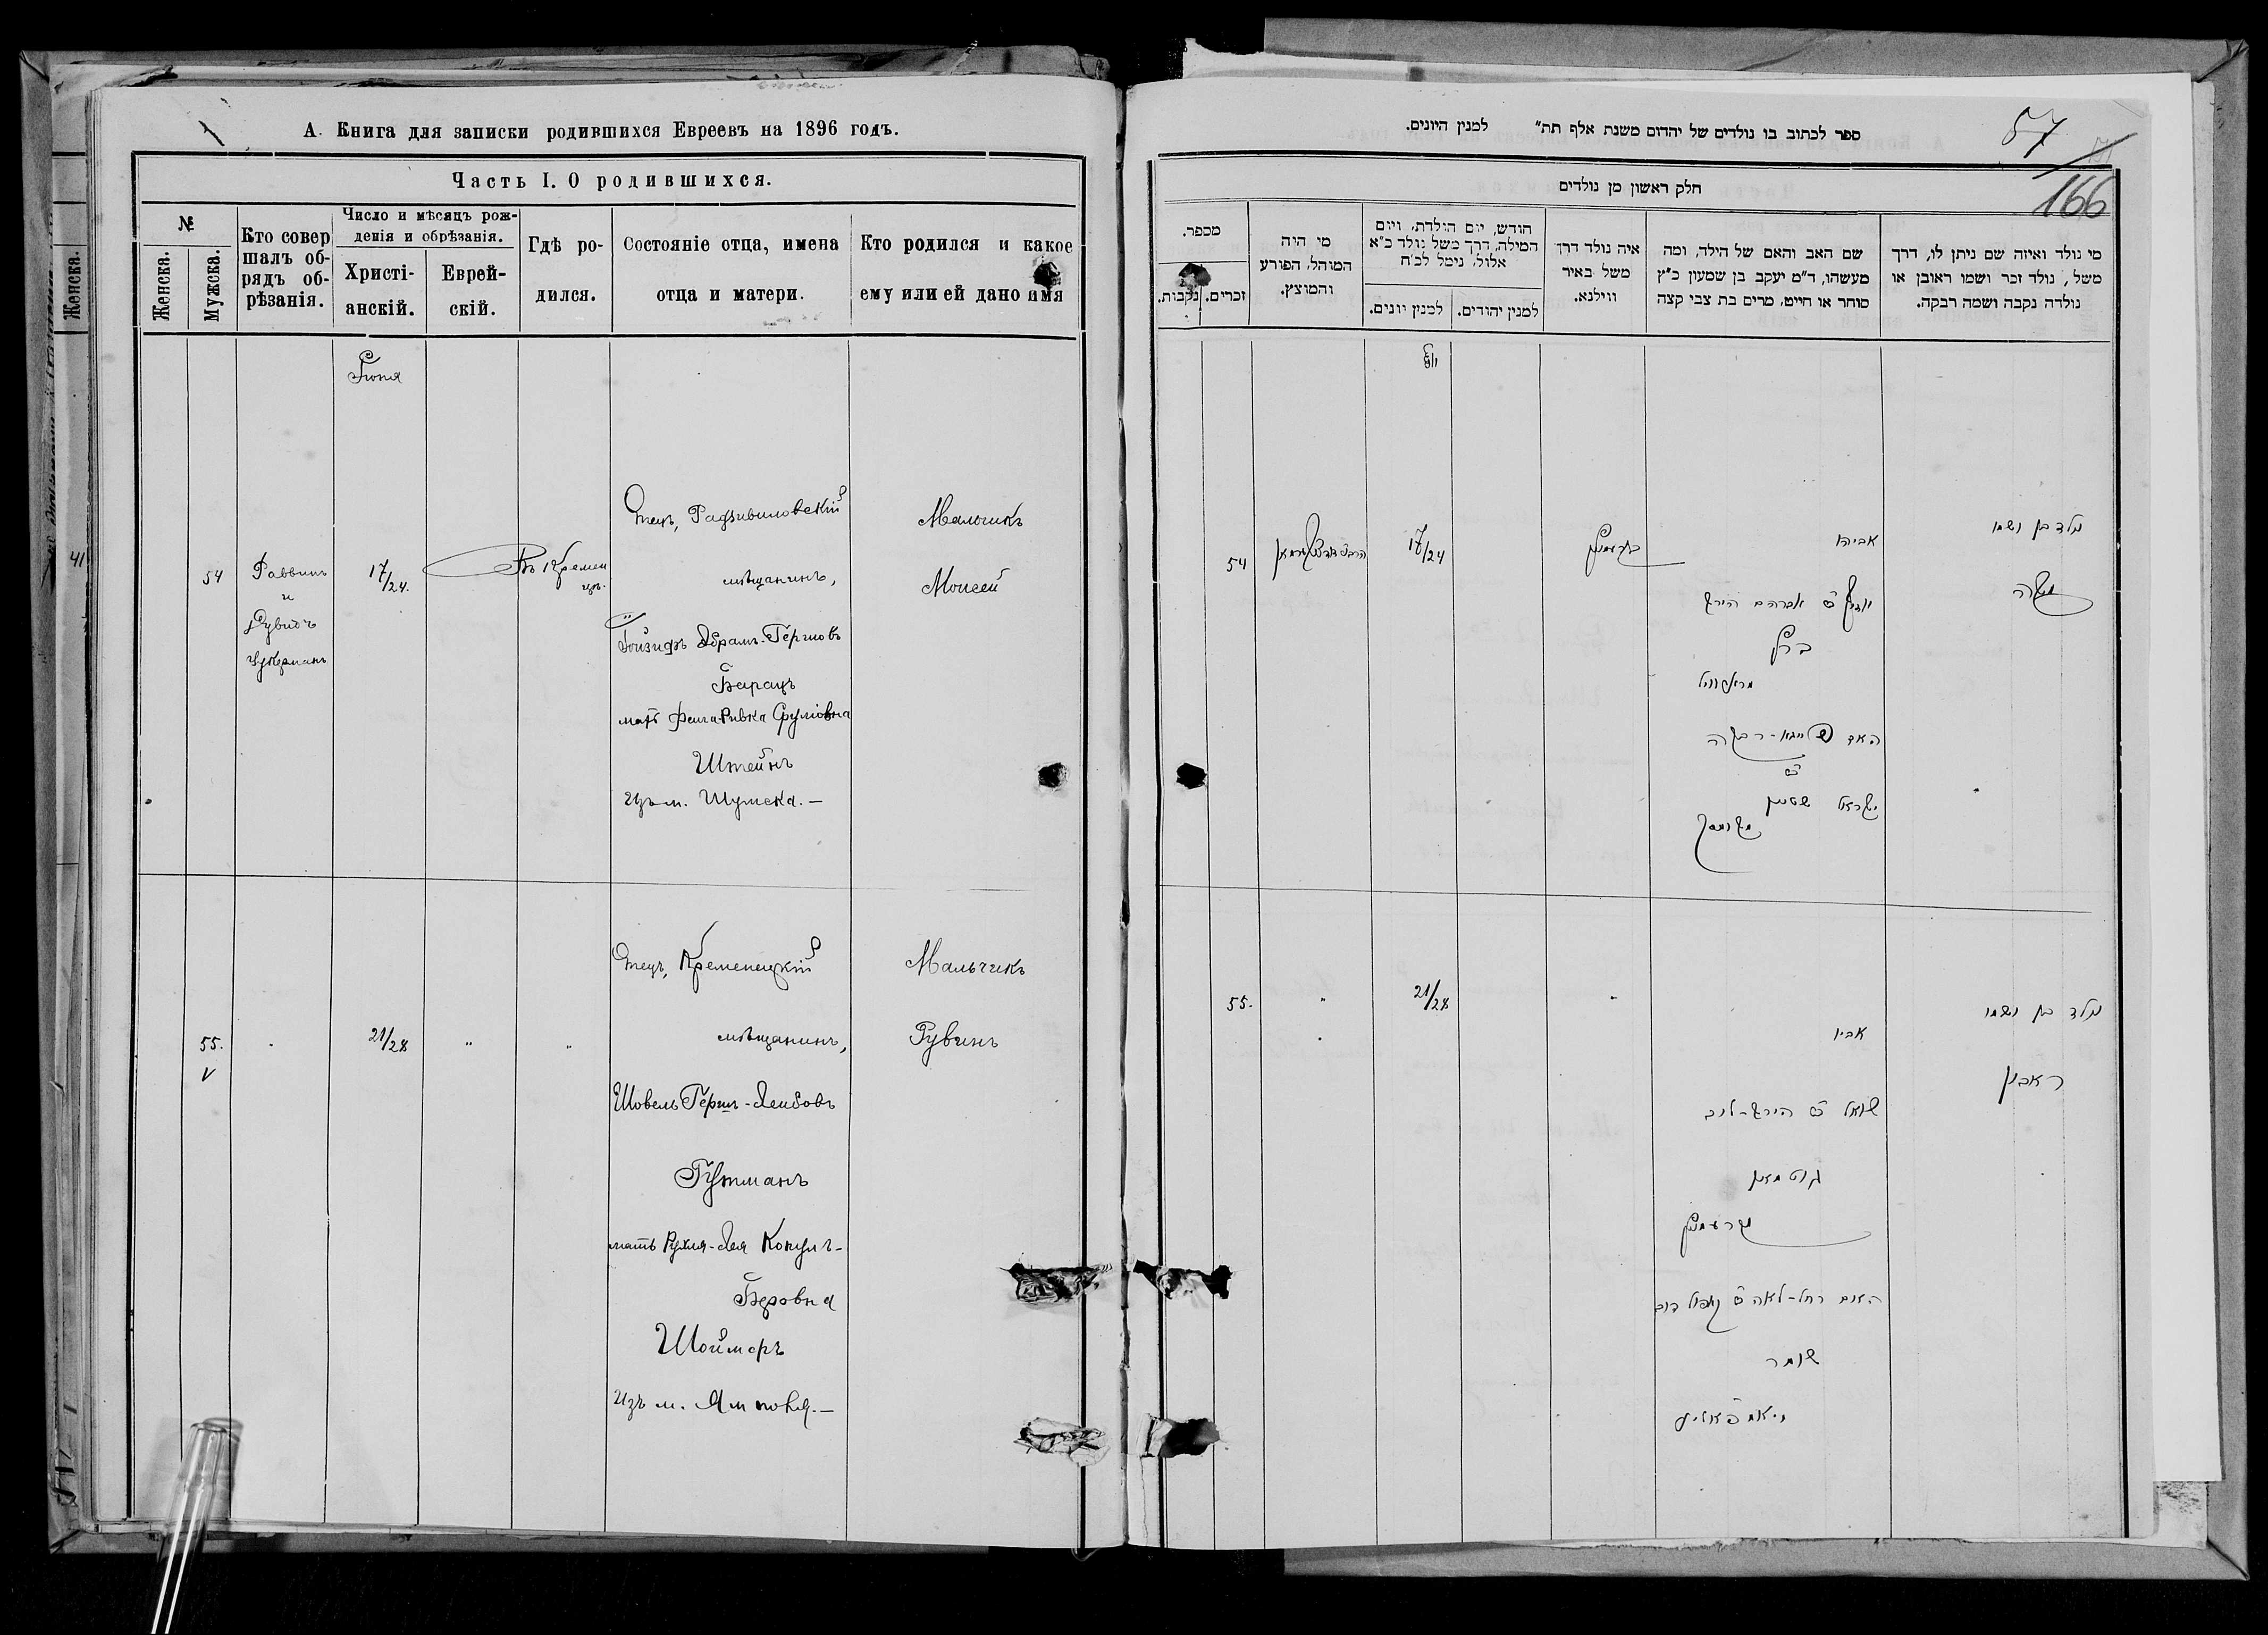 А. Книга для записки родившихся Евреевъ на 1896 годъ.
Часть I. О родившихся.
№
Женска.
Мужска.
Кто совер
шалъ об-
рядъ об-
рѣзанія.
Число и мѣсяцъ рож-
денія и обрѣзанія.
Христі-
анскій.
Еврей-
скій.
Гдѣ ро-
дился.
Состояніе отца, имена
отца и матери.
Кто родился и какое
ему или ей дано имя
Женска.
41
Іюня
54
Раввинъ
и
Рувинъ
Цукерманъ
17/24.
Въ Кремен
цѣ.
Отецъ, Радзивиловскій
мѣщанинъ,
Абрамъ-Гершовъ
Барацъ
мать Фейга-Ривка Сруліовна
Штейнъ
изъ м. Шумска.—
Мальчикъ
Моисей
55.
"
21/28
"
"
Отецъ, Кременецкій
мѣщанинъ,
Шовель Герш-Лейбовъ
Гутманъ
мать Рухля-Лея Копул-
Беровна
Шоймеръ
изъ м. Ямполя.—
Мальчикъ
Рувинъ
ספר לכתוב בו נולדים של יהדום משנת אלף תת״ למנין היונים.
57
166
חלק ראשון מן נולדים
מספר.
נקבות.
זכרים.
מי היה
המוהל, הפורע
והמוצץ.
חודש, יום הולדת, ויום
המילה, דרך משל נולד כ״א
אלול, נימל לכ״ח
למנין יונים.
למנין יהודים.
איה נולד דרך
משל באיר
ווילנא.
שם האב והאם של הילד, ומה
מעשהו, ד״מ יעקב בן שמעון כ״ץ
סוחר או חייט, מרים בת צבי קצה
מי נולד ואיזה שם ניתן לו, דרך
משל, נולד זכר ושמו ראובן או
נולדה נקבה ושמה רבקה.
יוני
54
17/24
קרעמניץ
אביהו
אברהם הירש
ברץ
ראדזוויל
האם פייגא-רבקה
ישראל שטיין
משומסק
נולד בן ושמו
משה
55.
"
21/28
"
אביו
שואל ב״ר הירש-לייב
גוטמאן
מקרעמניץ
האם רחל-לאה ב״ר קאפול דוב
שומר
מיאמפאליע
נולד בן ושמו
ראובן